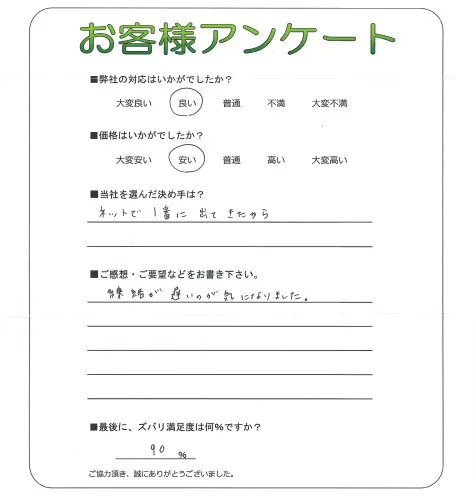 お客様アンケート
■弊社の対応はいかがでしたか？
大変良い 良い 普通 不満 大変不満
■価格はいかがでしたか？
大変安い 安い 普通 高い 大変高い
■当社を選んだ決め手は？
ネットで1番に出てきたから
■ご感想・ご要望などをお書き下さい。
連絡が遅いのが気になりました。
■最後に、ズバリ満足度は何%ですか？
90 %
ご協力頂き、誠にありがとうございました。